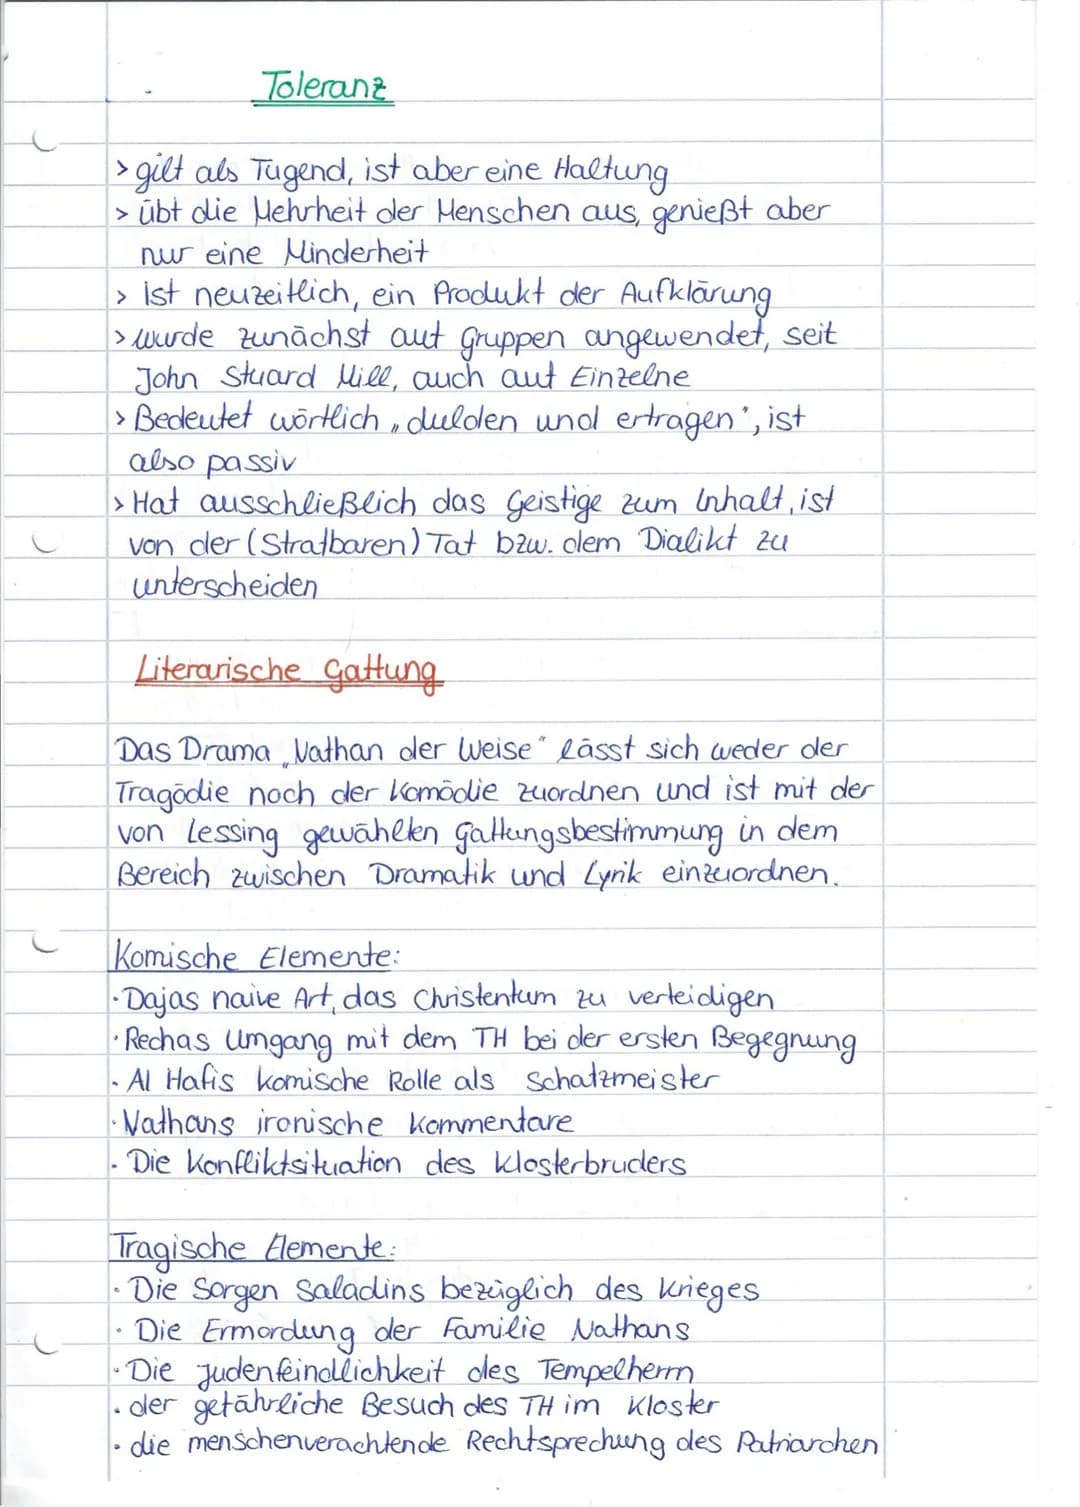 Toleranz
> gilt als Tugend, ist aber eine Haltung
> übt die Mehrheit der Menschen aus, genießt aber
nur eine Minderheit
> ist neuzeitlich, ein Produkt der Aufklärung
> wurde zunächst auf Gruppen angewendet, seit
John Stuard Mill, auch auf Einzelne
> Bedeutet wörtlich „dulden und ertragen", ist
also passiv
> Hat ausschließlich das Geistige zum Inhalt, ist
von der (Strafbaren) Tat bzw. dem Dialikt zu
unterscheiden
Literarische Gattung
Das Drama „Nathan der Weise" lässt sich weder der
Tragödie noch der Komödie zuordnen und ist mit der
von Lessing gewählten Gattungsbestimmung in dem
Bereich zwischen Dramatik und Lyrik einzuordnen.
Komische Elemente:
· Dajas naive Art, das Christentum zu verteidigen
· Rechas Umgang mit dem TH bei der ersten Begegnung
· Al Hafis komische Rolle als Schatzmeister
· Nathans ironische Kommentare
· Die Konfliktsituation des Klosterbruders
Tragische Elemente:
· Die Sorgen Saladins bezüglich des Krieges
· Die Ermordung der Familie Nathans
· Die Judenfeindlichkeit des Tempelherrn
· der gefährliche Besuch des TH im Kloster
· die menschenverachtende Rechtsprechung des Patriarchen